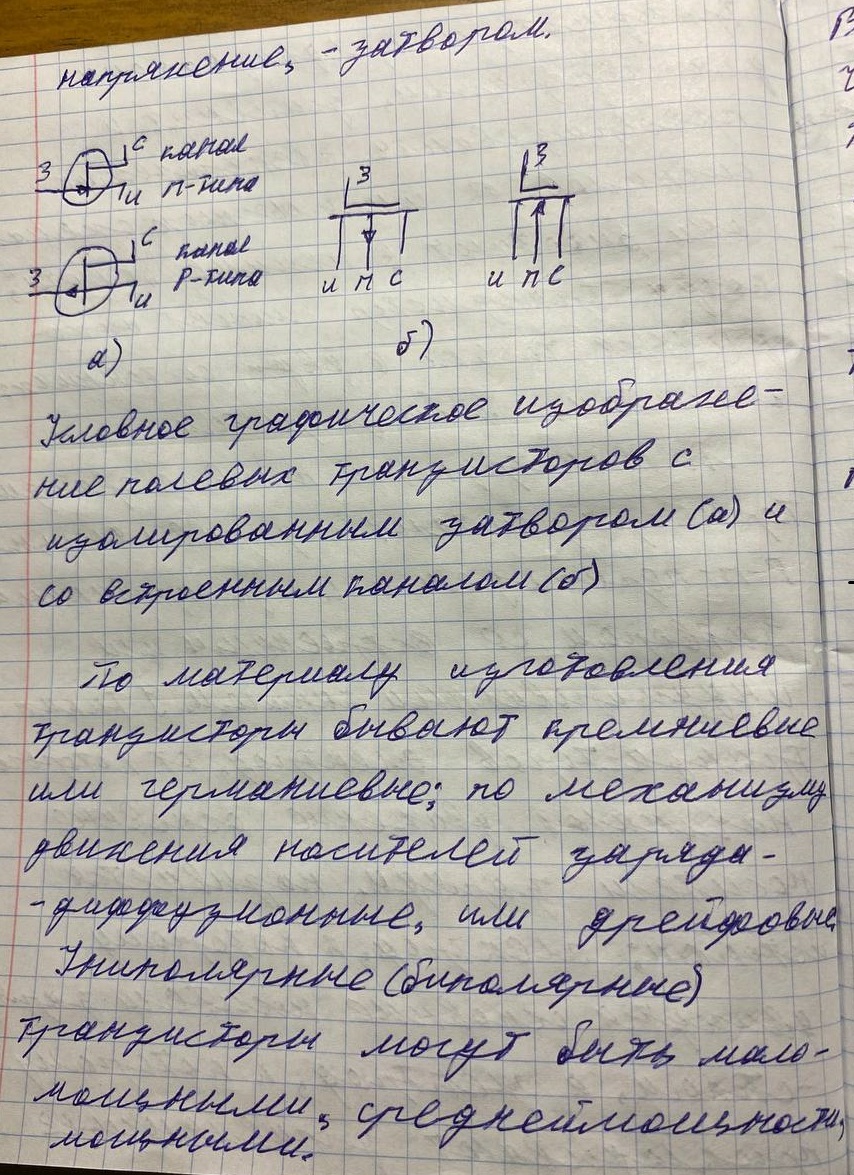 напряжение, - затвором.
З С канал
И n-типа
З
З
С канал
З И P-типа
И П С
И П С
а)
б)
Условное графическое изображе-
ние полевых транзисторов с
изолированным затвором (а) и
со встроенным каналом (б)
По материалу изготовления
транзисторы бывают кремниевые
или германиевые; по механизму
движения носителей заряда-
-диффузионные, или дрейфовые
Униполярные (биполярные)
транзисторы могут быть мало-
мощными, средней мощности,
мощными.